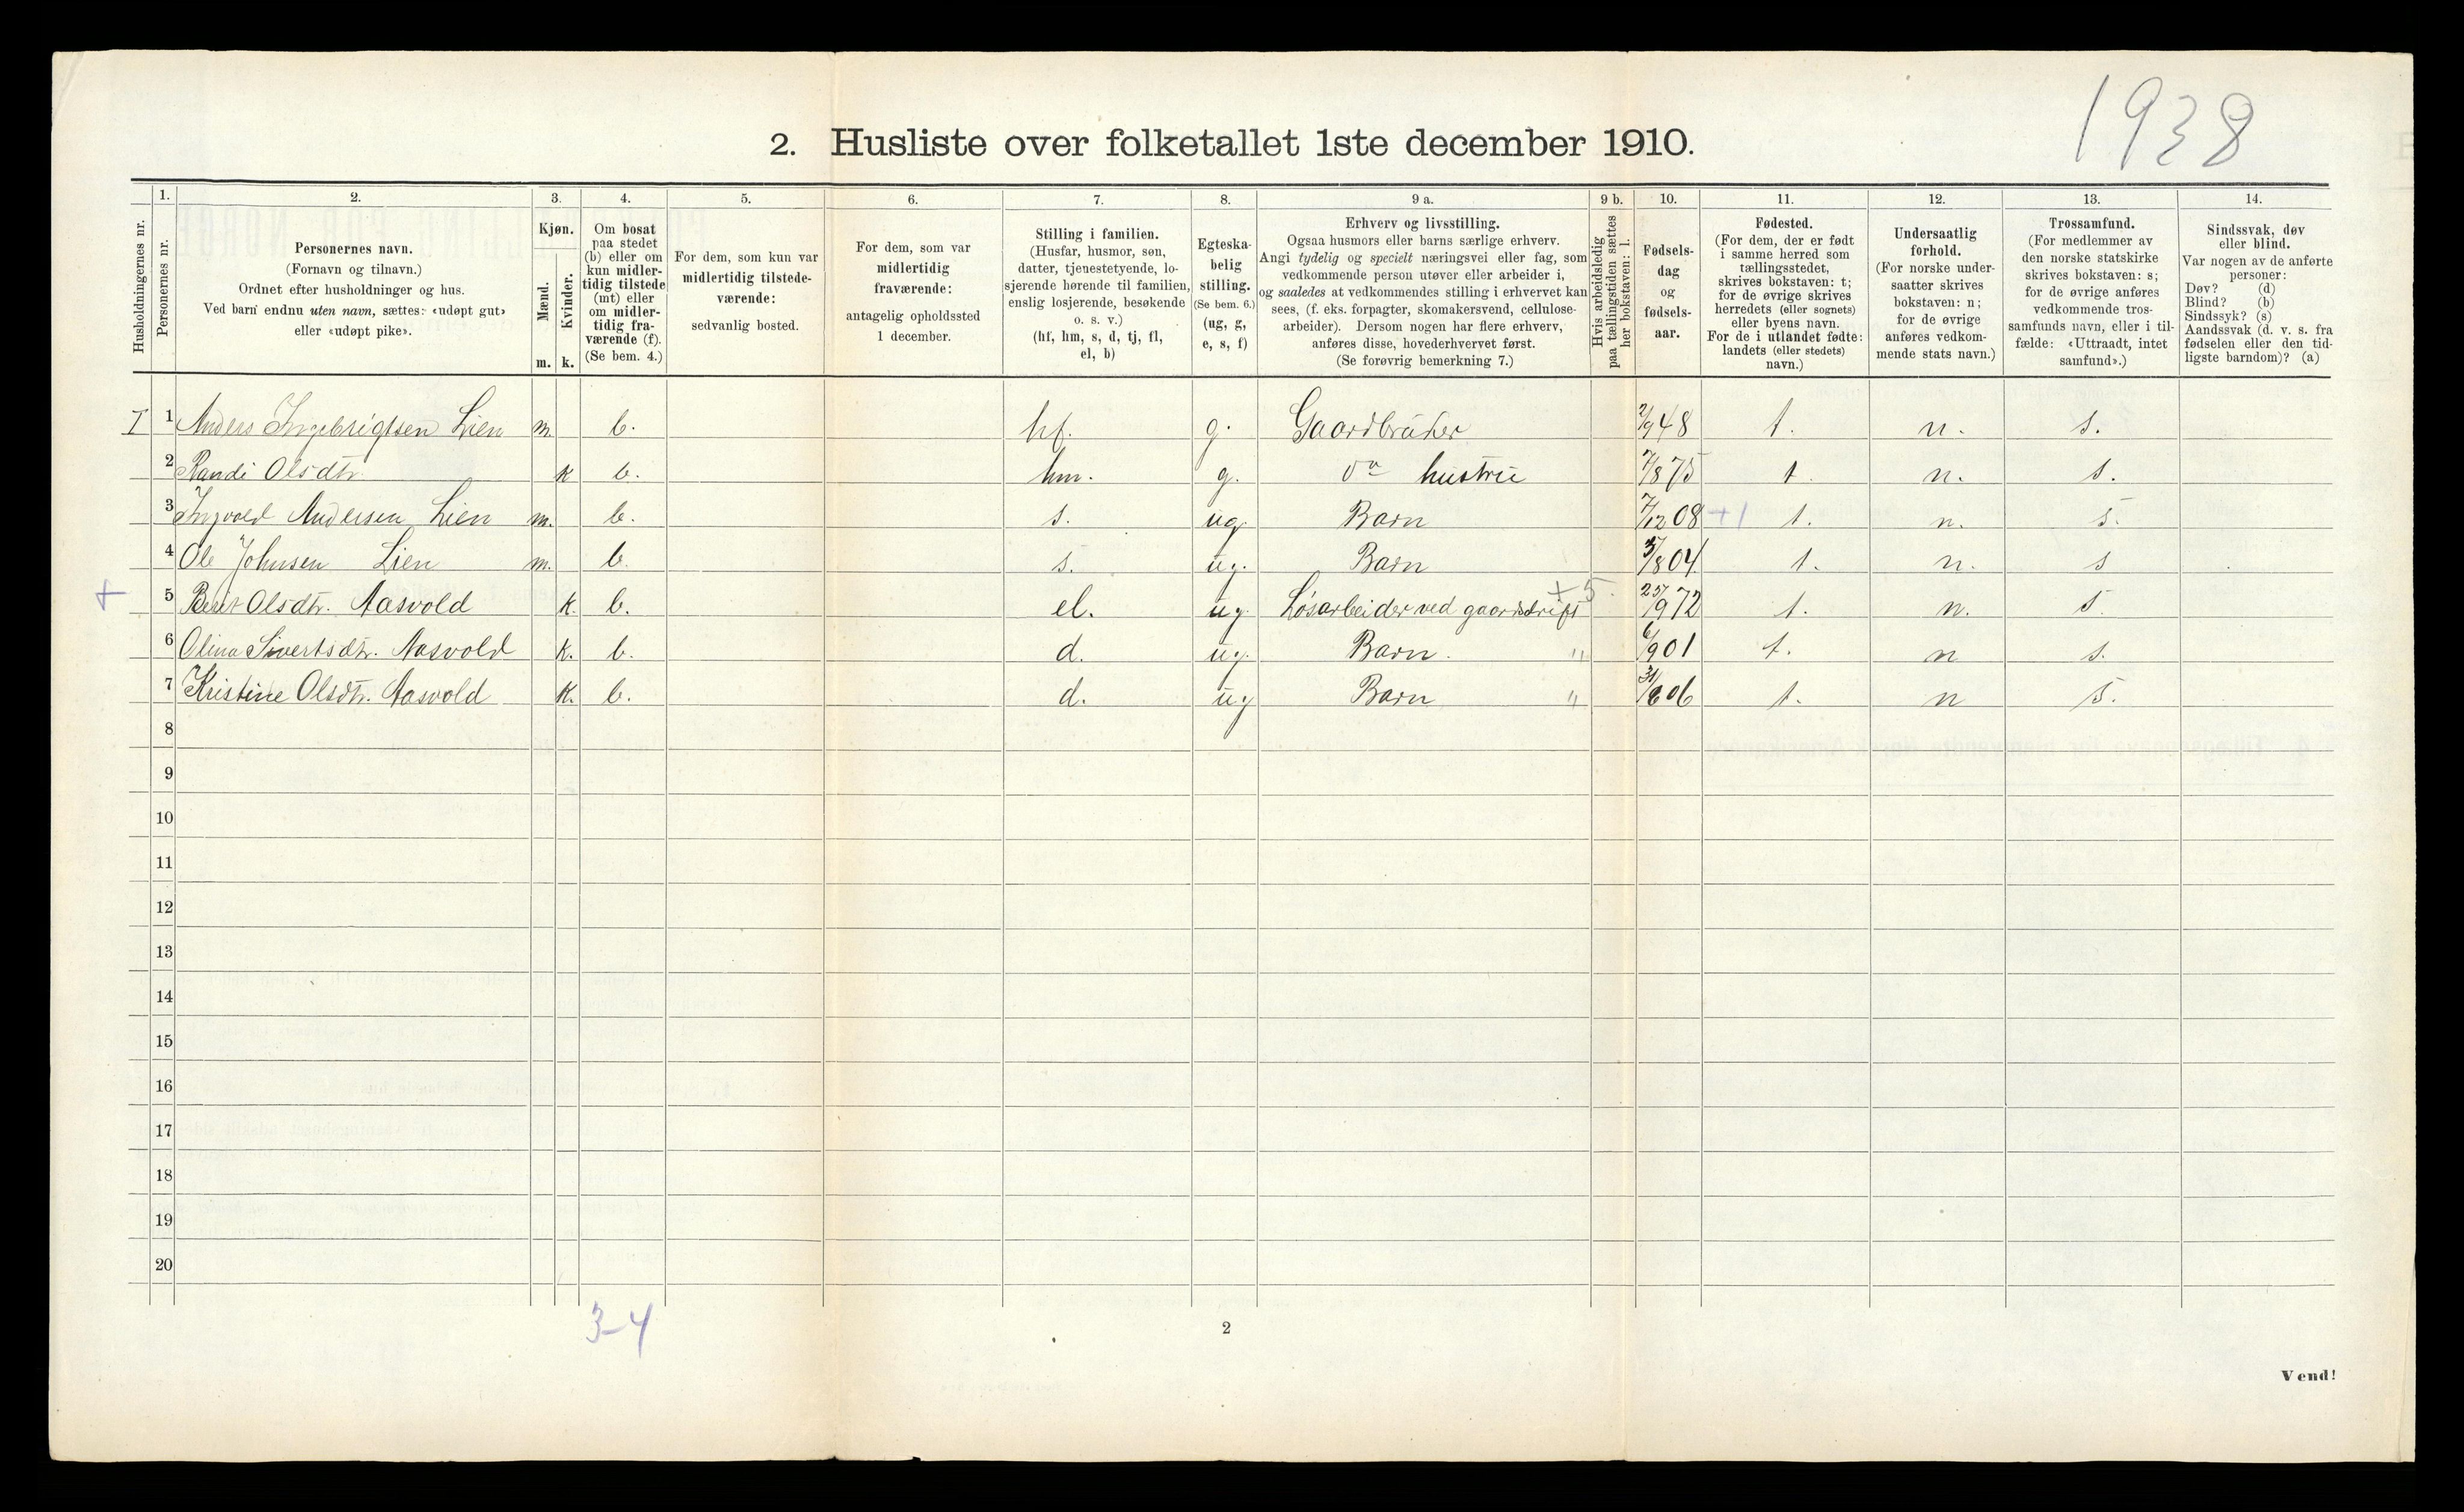 1938
2. Husliste over folketallet 1ste december 1910.
Husholdningernes nr.
1.
Personernes nr.
2.
Personernes navn.
(Fornavn og tilnavn.)
Ordnet efter husholdninger og hus.
Ved barn endnu uten navn, sættes: «udøpt gut»
eller «udøpt pike».
3.
Kjøn.
Mænd.
m.
Kvinder.
k.
4.
Om bosat
paa stedet
(b) eller om
kun midler-
tidig tilstede
(mt) eller
om midler-
tidig fra-
værende (f).
(Se bem. 4.)
5.
For dem, som kun var
midlertidig tilstede-
værende:
sedvanlig bosted.
6.
For dem, som var
midlertidig
fraværende:
antagelig opholdssted
1 december.
7.
Stilling i familien.
(Husfar, husmor, søn,
datter, tjenestetyende, lo-
sjerende hørende til familien,
enslig losjerende, besøkende
o. s. v.)
(hf, hm, s, d, tj, fl,
el, b)
8.
Egteska-
belig
stilling.
(Se bem. 6.)
(ug, g,
e, s, f)
9 a.
Erhverv og livsstilling.
Ogsaa husmors eller barns særlige erhverv.
Angi tydelig og specielt næringsvei eller fag, som
vedkommende person utøver eller arbeider i,
og saaledes at vedkommendes stilling i erhvervet kan
sees, (f. eks. forpagter, skomakersvend, cellulose-
arbeider). Dersom nogen har flere erhverv,
anføres disse, hovederhvervet først.
(Se forøvrig bemerkning 7.)
9 b.
Hvis arbeidsledig
paa tællingstiden sættes
her bokstaven: l.
10.
Fødsels-
dag
og
fødsels-
aar.
11.
Fødested.
(For dem, der er født
i samme herred som
tællingsstedet,
skrives bokstaven: t;
for de øvrige skrives
herredets (eller sognets)
eller byens navn.
For de i utlandet fødte:
landets (eller stedets)
navn.)
12.
Undersaatlig
forhold.
(For norske under-
saatter skrives
bokstaven: n;
for de øvrige
anføres vedkom-
mende stats navn.)
13.
Trossamfund.
(For medlemmer av
den norske statskirke
skrives bokstaven: s;
for de øvrige anføres
vedkommende tros-
samfunds navn, eller i til-
fælde: «Uttraadt, intet
samfund».)
14.
Sindssvak, døv
eller blind.
Var nogen av de anførte
personer:
Døv? (d)
Blind? (b)
Sindssyk? (s)
Aandssvak (d. v. s. fra
fødselen eller den tid-
ligste barndom)? (a)
I 1 Anders Ingebrigtsen Lien m. b. hf. g. Gaardbruker 2/9 48 t. n. s.
2 Randi Olsdtr. k b. hm. g. do hustru 7/8 75 t. n. s.
3 Ingvold Andersen Lien m. b. s. ug. Barn 7/12 08 +1 t. n. s.
4 Ole Johnsen Lien m. b. s. ug. Barn /8 04 t. n. s
+ 5 Beret Olsdtr. Aasvold k. b. el. ug Løsarbeider ved gaardsdrift +5. 25/9 72 t. n. s.
6 Olina Sivertsdtr. Aasvold k. b. d. ug. Barn. " 6/9 01 t. n s.
7 Kristine Olsdtr. Aasvold k. b. d. ug Barn " 06 t. n s.
8
9
10
11
12
13
14
15
16
17
18
19
20
3-4
2
Vend!